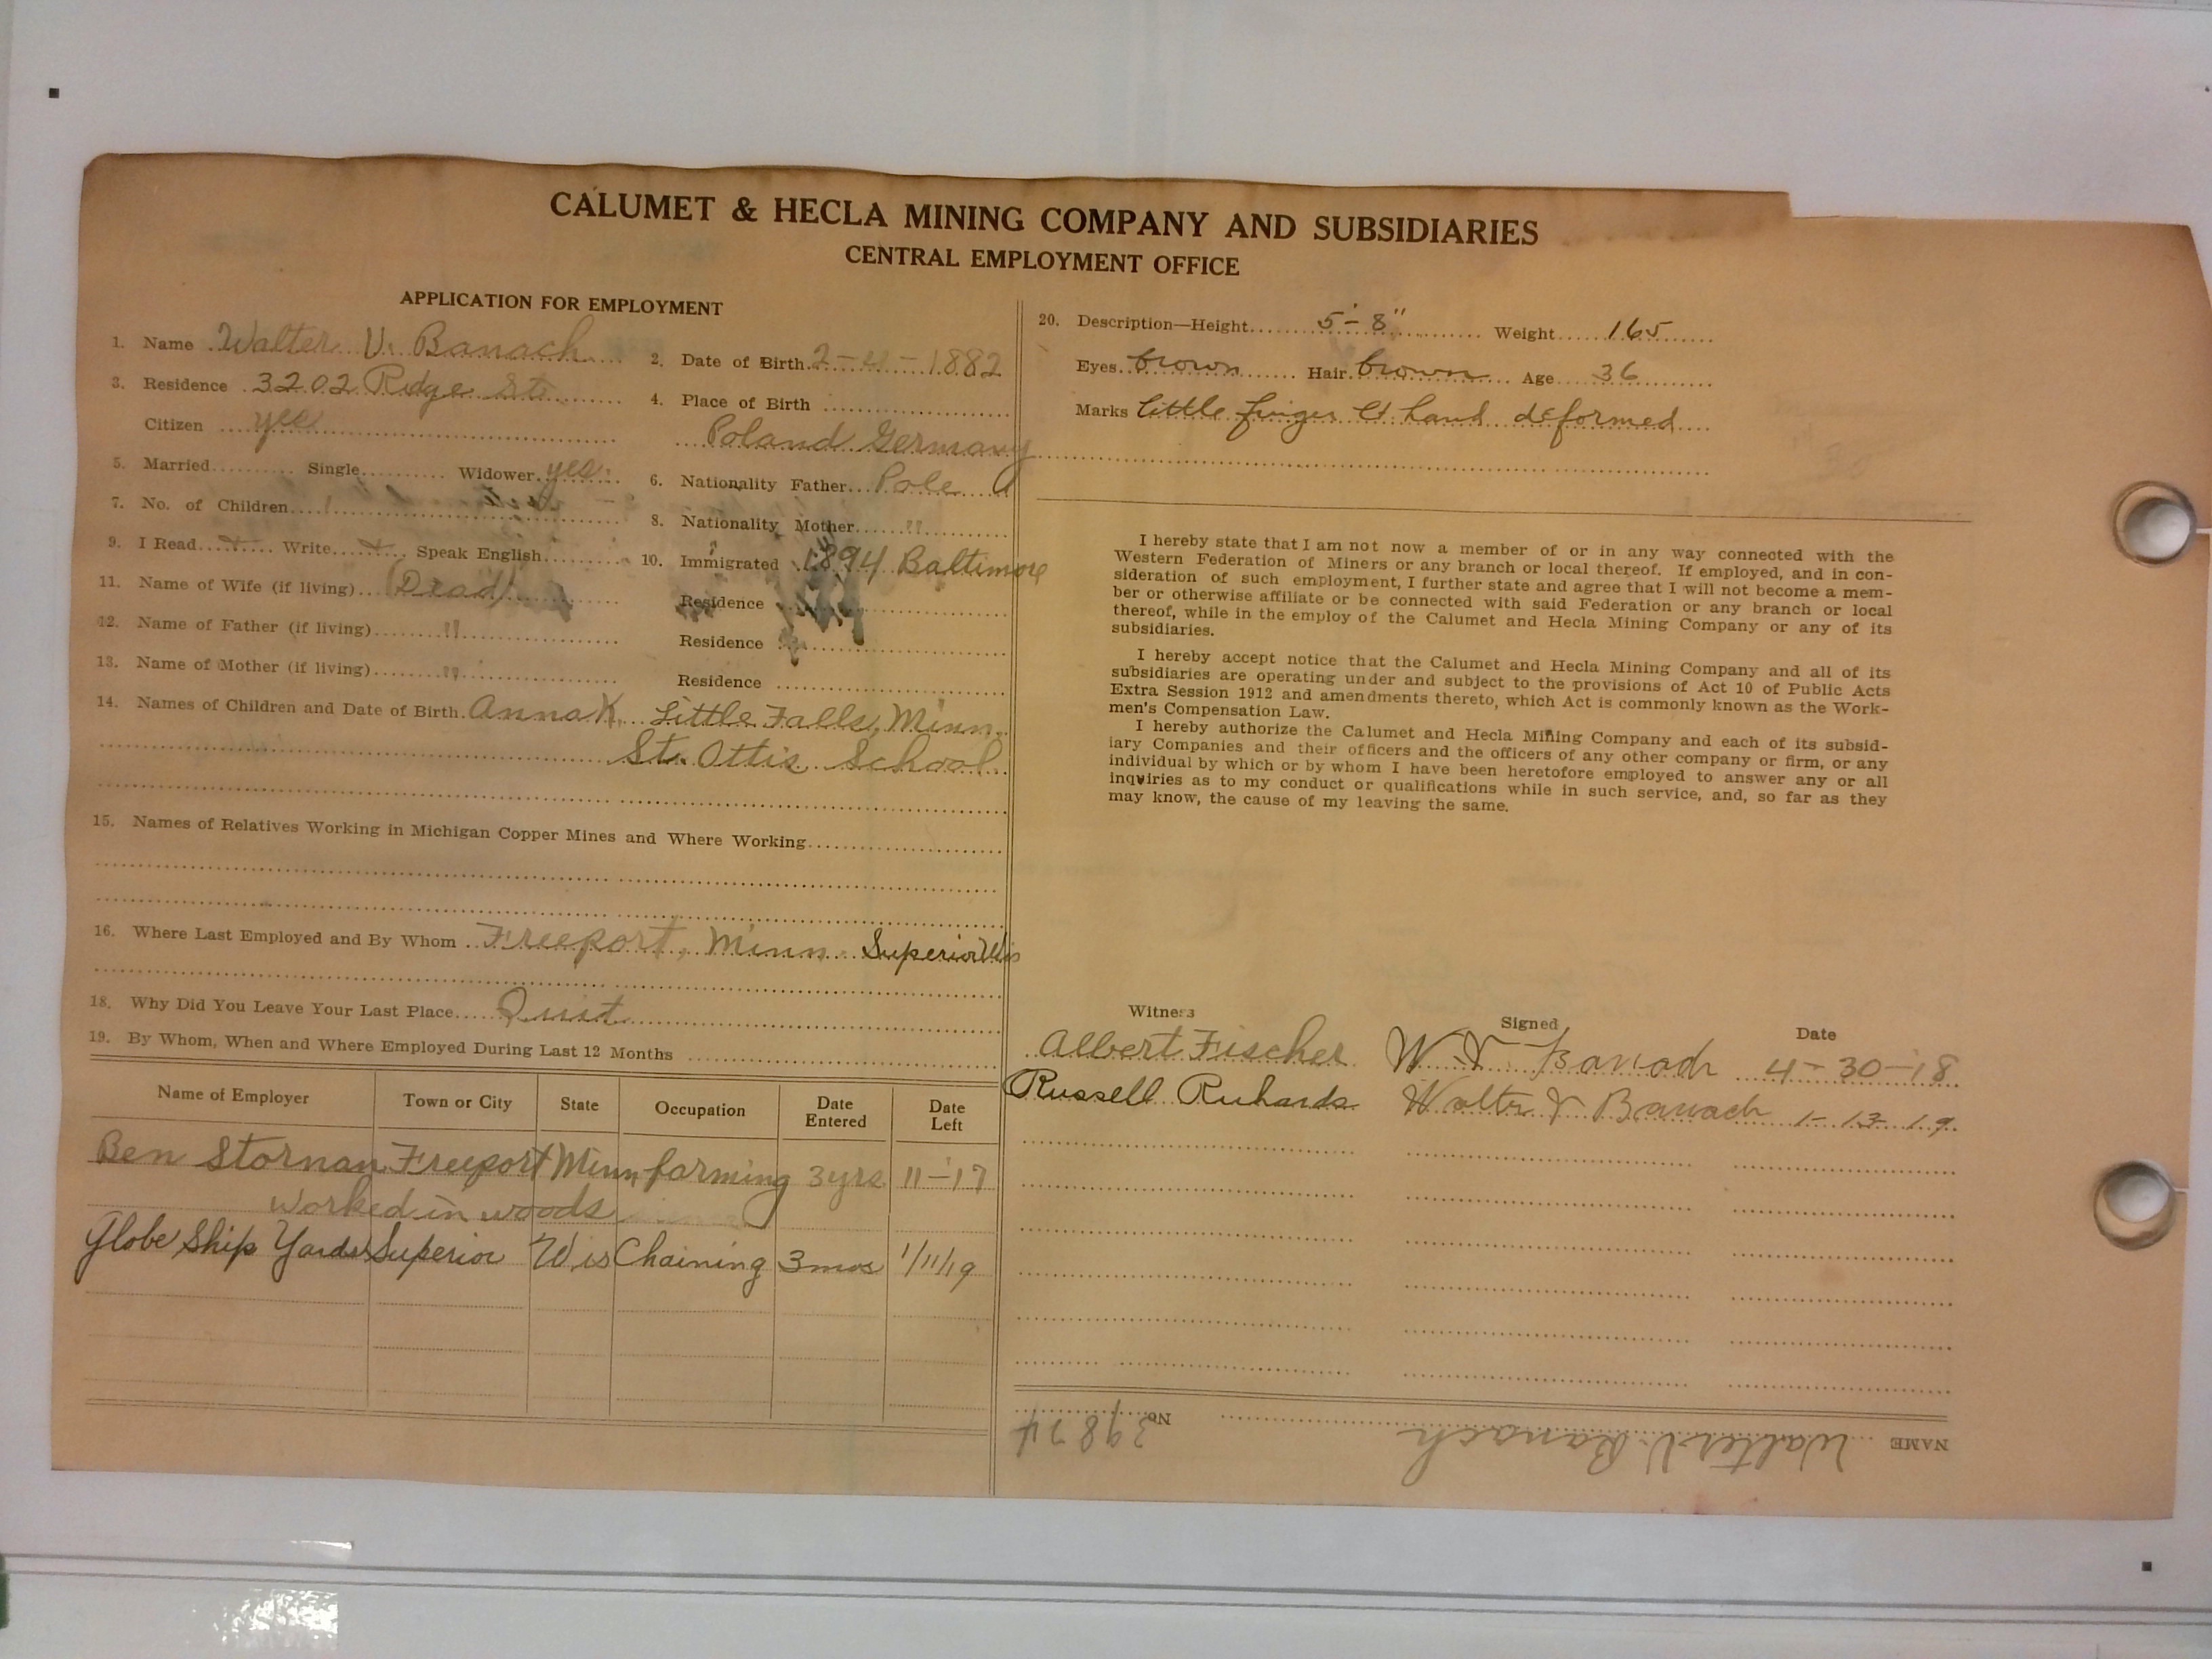 CALUMET & HECLA MINING COMPANY AND SUBSIDIARIES
CENTRAL EMPLOYMENT OFFICE
APPLICATION FOR EMPLOYMENT
1. Name Walter V. Banach
2. Date of Birth 2-4-1882
3. Residence 3202 Ridge St.
4. Place of Birth
Citizen yes
Poland Germany
5. Married Single Widower yes.
6. Nationality Father Pole
7. No. of Children 1
8. Nationality Mother "
9. I Read + Write + Speak English
10. Immigrated 1894 Baltimore
11. Name of Wife (if living) (Dead)
Residence
12. Name of Father (if living) "
Residence
13. Name of Mother (if living) "
Residence
14. Names of Children and Date of Birth Anna K. Little Falls, Minn.
St. Ottis School
15. Names of Relatives Working in Michigan Copper Mines and Where Working
16. Where Last Employed and By Whom Freeport, Minn. Superior Wis
18. Why Did You Leave Your Last Place Quit
19. By Whom, When and Where Employed During Last 12 Months
Name of Employer Town or City State Occupation Date Entered Date Left
Ben Stornan Freeport Minn farming 3 yrs 11-17
worked in woods
Globe Ship Yards Superior Wis Chaining 3 mos 1/11/19
20. Description—Height 5'-8" Weight 165
Eyes brown Hair brown Age 36
Marks little finger lt hand deformed
I hereby state that I am not now a member of or in any way connected with the
Western Federation of Miners or any branch or local thereof. If employed, and in con-
sideration of such employment, I further state and agree that I will not become a mem-
ber or otherwise affiliate or be connected with said Federation or any branch or local
thereof, while in the employ of the Calumet and Hecla Mining Company or any of its
subsidiaries.
I hereby accept notice that the Calumet and Hecla Mining Company and all of its
subsidiaries are operating under and subject to the provisions of Act 10 of Public Acts
Extra Session 1912 and amendments thereto, which Act is commonly known as the Work-
men's Compensation Law.
I hereby authorize the Calumet and Hecla Mining Company and each of its subsid-
iary Companies and their officers and the officers of any other company or firm, or any
individual by which or by whom I have been heretofore employed to answer any or all
inquiries as to my conduct or qualifications while in such service, and, so far as they
may know, the cause of my leaving the same.
Witness Signed Date
Albert Fischer W. V. Banach 4-30-18
Russell Richards Walter V Banach 1-13-19
NAME Walter V. Banach No. 39874